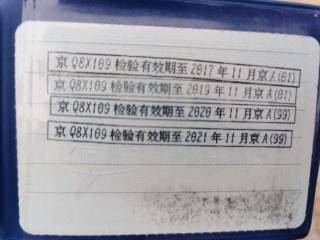 京Q8X109检验有效期至2017年11月京A(01)
京Q8X109检验有效期至2019年11月京A(01)
京Q8X109检验有效期至2020年11月京A(99)
京Q8X109检验有效期至2021年11月京A(99)